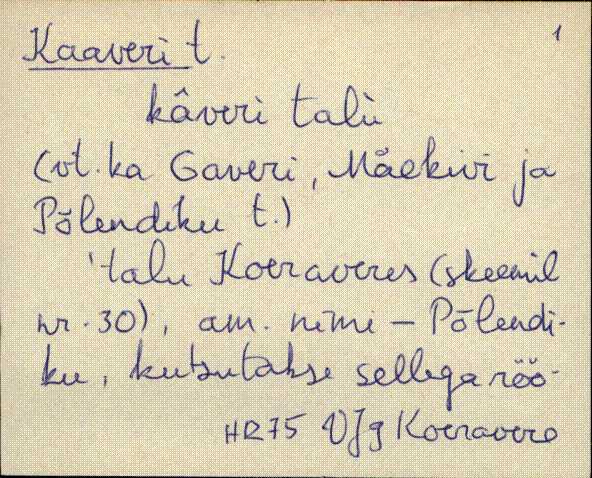 1
Kaaveri t.
kâveri talù
(vt. ka Gaveri, Mäekivi ja
Põlendiku t.)
'talu Koeraveres (skeemil
nr. 30), am. nimi – Põlendi-
ku, kutsutakse sellega röö-
HR75 VJg Koeravere